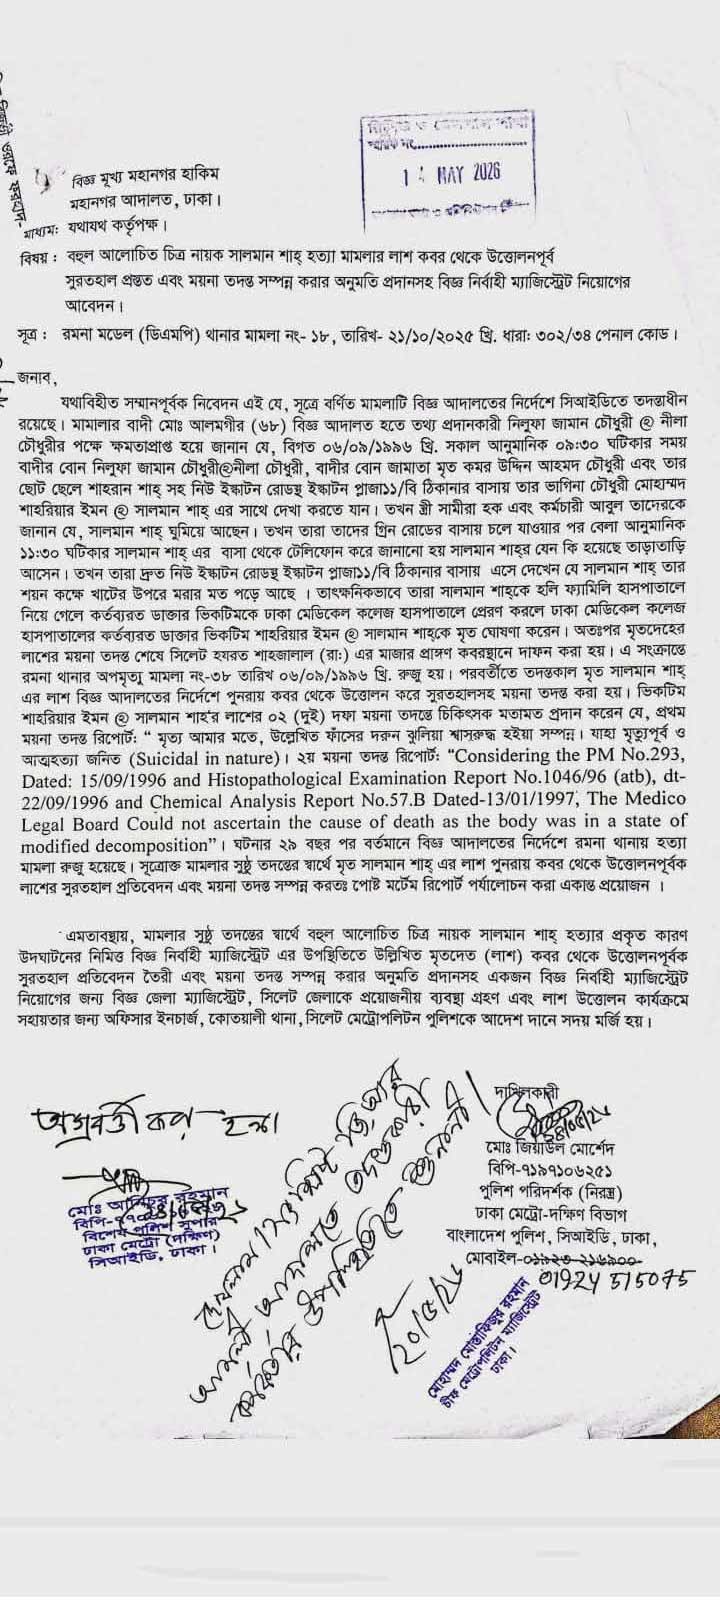 14 MAY 2026
বিজ্ঞ মূখ্য মহানগর হাকিম
মহানগর আদালত, ঢাকা।
মাধ্যম: যথাযথ কর্তৃপক্ষ।
বিষয় : বহুল আলোচিত চিত্র নায়ক সালমান শাহ্ হত্যা মামলার লাশ কবর থেকে উত্তোলনপূর্ব
সুরতহাল প্রস্তত এবং ময়না তদন্ত সম্পন্ন করার অনুমতি প্রদানসহ বিজ্ঞ নির্বাহী ম্যাজিস্ট্রেট নিয়োগের
আবেদন।
সূত্র : রমনা মডেল (ডিএমপি) থানার মামলা নং- ১৮, তারিখ- ২১/১০/২০২৫ খ্রি. ধারা: ৩০২/৩৪ পেনাল কোড।
জনাব,
যথাবিহীত সম্মানপূর্বক নিবেদন এই যে, সূত্রে বর্ণিত মামলাটি বিজ্ঞ আদালতের নির্দেশে সিআইডিতে তদন্তাধীন
রয়েছে। মামালার বাদী মোঃ আলমগীর (৬৮) বিজ্ঞ আদালত হতে তথ্য প্রদানকারী নিলুফা জামান চৌধুরী @ নীলা
চৌধুরীর পক্ষে ক্ষমতাপ্রাপ্ত হয়ে জানান যে, বিগত ০৬/০৯/১৯৯৬ খ্রি. সকাল আনুমানিক ০৯:৩০ ঘটিকার সময়
বাদীর বোন নিলুফা জামান চৌধুরী@নীলা চৌধুরী, বাদীর বোন জামাতা মৃত কমর উদ্দিন আহমদ চৌধুরী এবং তার
ছোট ছেলে শাহরান শাহ্ সহ নিউ ইস্কাটন রোডস্থ ইস্কাটন প্লাজা১১/বি ঠিকানার বাসায় তার ভাগিনা চৌধুরী মোহাম্মদ
শাহরিয়ার ইমন @ সালমান শাহ্ এর সাথে দেখা করতে যান। তখন স্ত্রী সামীরা হক এবং কর্মচারী আবুল তাদেরকে
জানান যে, সালমান শাহ্ ঘুমিয়ে আছেন। তখন তারা তাদের গ্রিন রোডের বাসায় চলে যাওয়ার পর বেলা আনুমানিক
১১:৩০ ঘটিকার সালমান শাহ্ এর বাসা থেকে টেলিফোন করে জানানো হয় সালমান শাহ্‌র যেন কি হয়েছে তাড়াতাড়ি
আসেন। তখন তারা দ্রুত নিউ ইস্কাটন রোডস্থ ইস্কাটন প্লাজা১১/বি ঠিকানার বাসায় এসে দেখেন যে সালমান শাহ্ তার
শয়ন কক্ষে খাটের উপরে মরার মত পড়ে আছে । তাৎক্ষনিকভাবে তারা সালমান শাহ্‌কে হলি ফ্যামিলি হাসপাতালে
নিয়ে গেলে কর্তব্যরত ডাক্তার ভিকটিমকে ঢাকা মেডিকেল কলেজ হাসপাতালে প্রেরণ করলে ঢাকা মেডিকেল কলেজ
হাসপাতালের কর্তব্যরত ডাক্তার ভিকটিম শাহরিয়ার ইমন @ সালমান শাহ্‌কে মৃত ঘোষণা করেন। অতঃপর মৃতদেহের
লাশের ময়না তদন্ত শেষে সিলেট হযরত শাহজালাল (রা:) এর মাজার প্রাঙ্গণ কবরস্থানে দাফন করা হয়। এ সংক্রান্তে
রমনা থানার অপমৃত্যু মামলা নং-৩৮ তারিখ ০৬/০৯/১৯৯৬ খ্রি. রুজু হয়। পরবর্তীতে তদন্তকাল মৃত সালমান শাহ্
এর লাশ বিজ্ঞ আদালতের নির্দেশে পুনরায় কবর থেকে উত্তোলন করে সুরতহালসহ ময়না তদন্ত করা হয়। ভিকটিম
শাহরিয়ার ইমন @ সালমান শাহ'র লাশের ০২ (দুই) দফা ময়না তদন্তে চিকিৎসক মতামত প্রদান করেন যে, প্রথম
ময়না তদন্ত রিপোর্ট: “ মৃত্য আমার মতে, উল্লেখিত ফাঁসের দরুন ঝুলিয়া শ্বাসরুদ্ধ হইয়া সম্পন্ন। যাহা মৃত্যুপূর্ব ও
আত্মহত্যা জনিত (Suicidal in nature)। ২য় ময়না তদন্ত রিপোর্ট: “Considering the PM No.293,
Dated: 15/09/1996 and Histopathological Examination Report No.1046/96 (atb), dt-
22/09/1996 and Chemical Analysis Report No.57.B Dated-13/01/1997, The Medico
Legal Board Could not ascertain the cause of death as the body was in a state of
modified decomposition”। ঘটনার ২৯ বছর পর বর্তমানে বিজ্ঞ আদালতের নির্দেশে রমনা থানায় হত্যা
মামলা রুজু হয়েছে। সূত্রোক্ত মামলার সুষ্ঠু তদন্তের স্বার্থে মৃত সালমান শাহ্ এর লাশ পুনরায় কবর থেকে উত্তোলনপূর্বক
লাশের সুরতহাল প্রতিবেদন এবং ময়না তদন্ত সম্পন্ন করতঃ পোষ্ট মর্টেম রিপোর্ট পর্যালোচন করা একান্ত প্রয়োজন ।
এমতাবস্থায়, মামলার সুষ্ঠু তদন্তের স্বার্থে বহুল আলোচিত চিত্র নায়ক সালমান শাহ্ হত্যার প্রকৃত কারণ
উদঘাটনের নিমিত্ত বিজ্ঞ নির্বাহী ম্যাজিস্ট্রেট এর উপস্থিতিতে উল্লিখিত মৃতদেহ (লাশ) কবর থেকে উত্তোলনপূর্বক
সুরতহাল প্রতিবেদন তৈরী এবং ময়না তদন্ত সম্পন্ন করার অনুমতি প্রদানসহ একজন বিজ্ঞ নির্বাহী ম্যাজিস্ট্রেট
নিয়োগের জন্য বিজ্ঞ জেলা ম্যাজিস্ট্রেট, সিলেট জেলাকে প্রয়োজনীয় ব্যবস্থা গ্রহণ এবং লাশ উত্তোলন কার্যক্রমে
সহায়তার জন্য অফিসার ইনচার্জ, কোতয়ালী থানা, সিলেট মেট্রোপলিটন পুলিশকে আদেশ দানে সদয় মর্জি হয়।
অগ্রবর্তী করা হলো।
দাখিলকারী
মোঃ জিয়াউল মোর্শেদ
বিপি-৭১৯৭১০৬২৫১
পুলিশ পরিদর্শক (নিরস্ত্র)
ঢাকা মেট্রো-দক্ষিণ বিভাগ
বাংলাদেশ পুলিশ, সিআইডি, ঢাকা,
মোবাইল-০১৯২৩-২১৬৯০০
01924 515075
বিশেষ পুলিশ সুপার
ঢাকা মেট্রো (দক্ষিণ)
সিআইডি, ঢাকা।
২০/৫/২৬
মোহাম্মদ মোস্তাফিজুর রহমান
চীফ মেট্রোপলিটন ম্যাজিস্ট্রেট
ঢাকা।